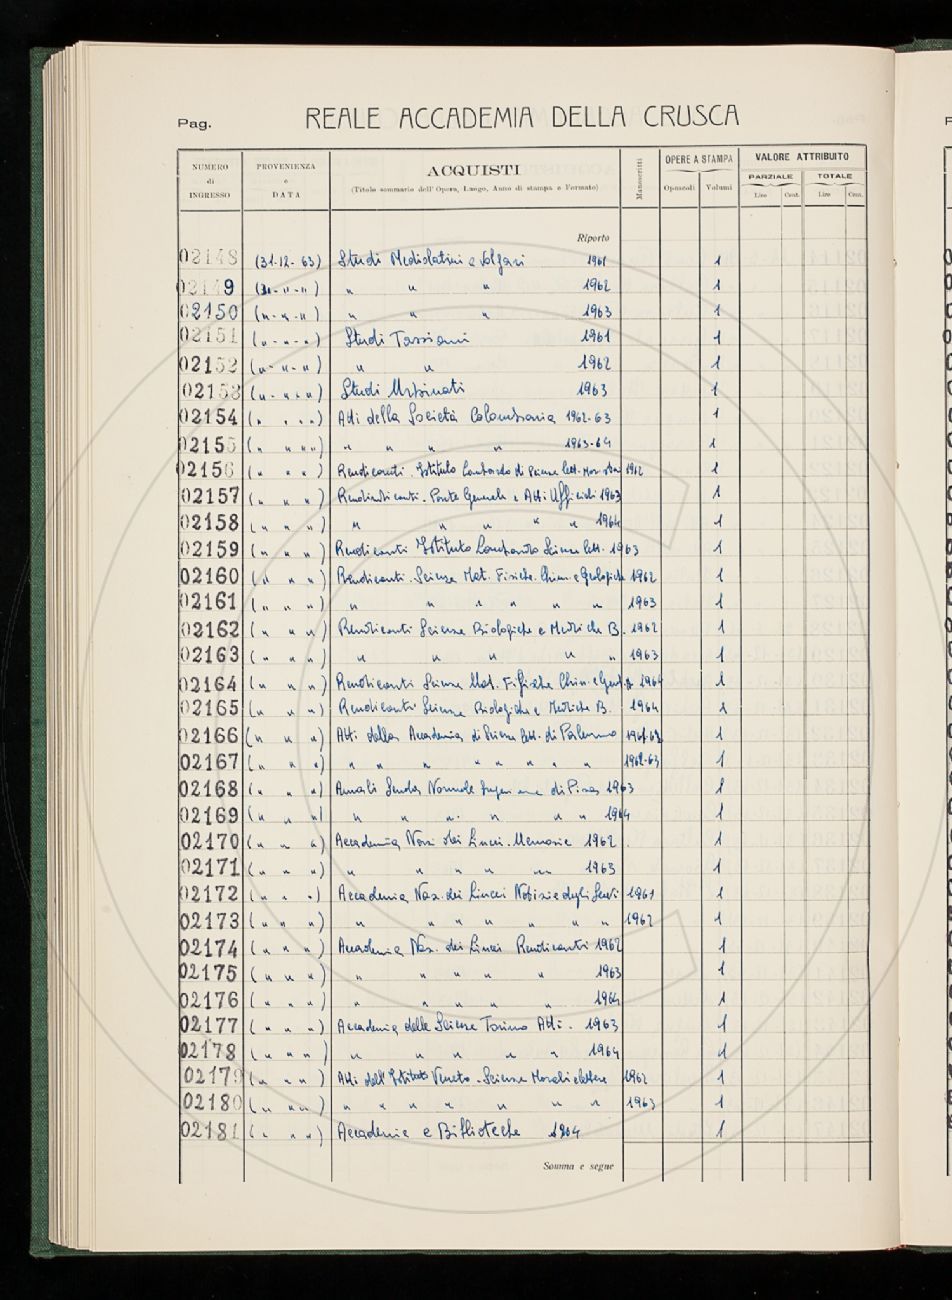 Pag. REALE ACCADEMIA DELLA CRUSCA
NUMERO di INGRESSO PROVENIENZA e DATA ACQUISTI (Titolo sommario dell'Opera, Luogo, Anno di stampa e Formato) Manoscritti OPERE A STAMPA Opuscoli Volumi VALORE ATTRIBUITO PARZIALE Lire Cent. TOTALE Lire Cen.
Riporto
02148 (31-12-63) Studi Mediolatini e Volgari 1961 1
02149 (31-"-") " " " 1962 1
02150 ("-"-") " " " 1963 1
02151 ("-"-") Studi Tassiani 1961 1
02152 ("-"-") " " 1962 1
02153 ("-"-") Studi Urbinati 1963 1
02154 (" " " ") Atti della Società Colombaria 1962-63 1
02155 (" " " ") " " " " 1963-64 1
02156 (" " ") Rendiconti. Istituto Lombardo di Scienze Lett. Mor. 1962 1
02157 (" " ") Rendindiconti. Parte Generale e Atti Ufficiali 1963 1
02158 (" " ") " " " " " 1964 1
02159 (" " ") Rendiconti Istituto Lombardo Scienze Lett. 1963 1
02160 (" " ") Rendiconti. Scienze Mat. Fisiche. Chim. e Geologiche 1962 1
02161 (" " ") " " " " " " 1963 1
02162 (" " ") Rendiconti Scienze Biologiche e Mediche B. 1962 1
02163 (" " ") " " " " " 1963 1
02164 (" " ") Rendiconti Scienze Mat. Fisiche Chim. e Geol. 1964 1
02165 (" " ") Rendiconti Scienze Biologiche e Mediche B. 1964 1
02166 (" " ") Atti della Accademia di Scienze Lett. di Palermo 1
02167 (" " ") " " " " " " " " 1962-63 1
02168 (" " ") Annali Scuola Normale Superiore di Pisa 1963 1
02169 (" " ") " " " " " " 1964 1
02170 (" " ") Accademia Naz. dei Lincei. Memorie 1962 1
02171 (" " ") " " " " " 1963 1
02172 (" " ") Accademia Naz. dei Lincei Notizie degli Scavi 1961 1
02173 (" " ") " " " " " " " 1962 1
02174 (" " ") Accademia Naz. dei Lincei Rendiconti 1962 1
02175 (" " ") " " " " " 1963 1
02176 (" " ") " " " " " 1964 1
02177 (" " ") Accademia delle Scienze Torino Atti. 1963 1
02178 (" " ") " " " " " 1964 1
02179 (" " ") Atti dell'Istituto Veneto. Scienze Morali e lettere 1962 1
02180 (" " ") " " " " " " " 1963 1
02181 (" " ") Accademie e Biblioteche 1
Somma e segue